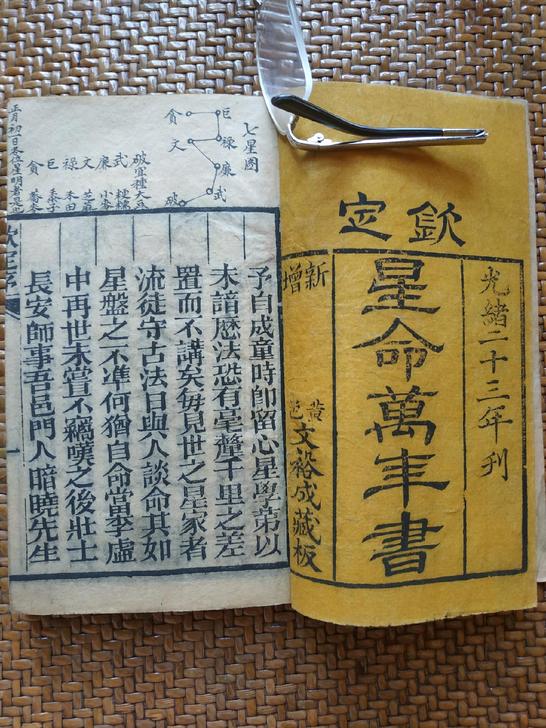 欽定
光緒二十三年刊
星命萬年書
新增
黃邑
文裕成藏板
七星圖
貪
巨
文
祿
廉
武
破
破宜種大豆
武
廉
文
祿
巨
貪
予自成童時即留心星學第以
未諳曆法恐有毫釐千里之差
置而不講矣每見世之星家者
流徒守古法日與人談命其如
星盤之不準何猶自命當李虛
中再世未嘗不竊嘆之後壯士
長安師事吾邑門人暗曉先生